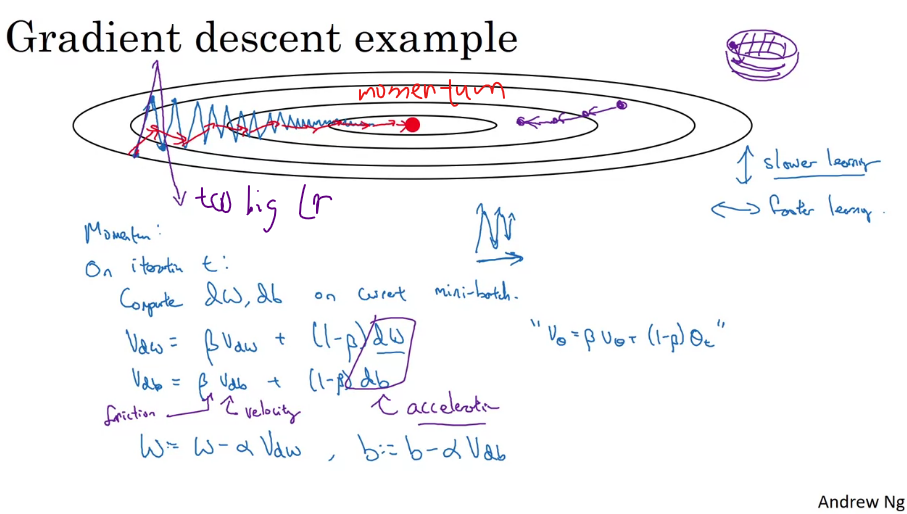 Gradient descent example
momentum
slower learning
faster learning.
too big Lr
Momentum:
On iteration t:
Compute dW, db on current mini-batch.
Vdw = β Vdw + (1-β) dW
Vdb = β Vdb + (1-β) db
"Vθ = β Vθ + (1-β) θt"
friction velocity acceleration
W := W - α Vdw , b := b - α Vdb
Andrew Ng